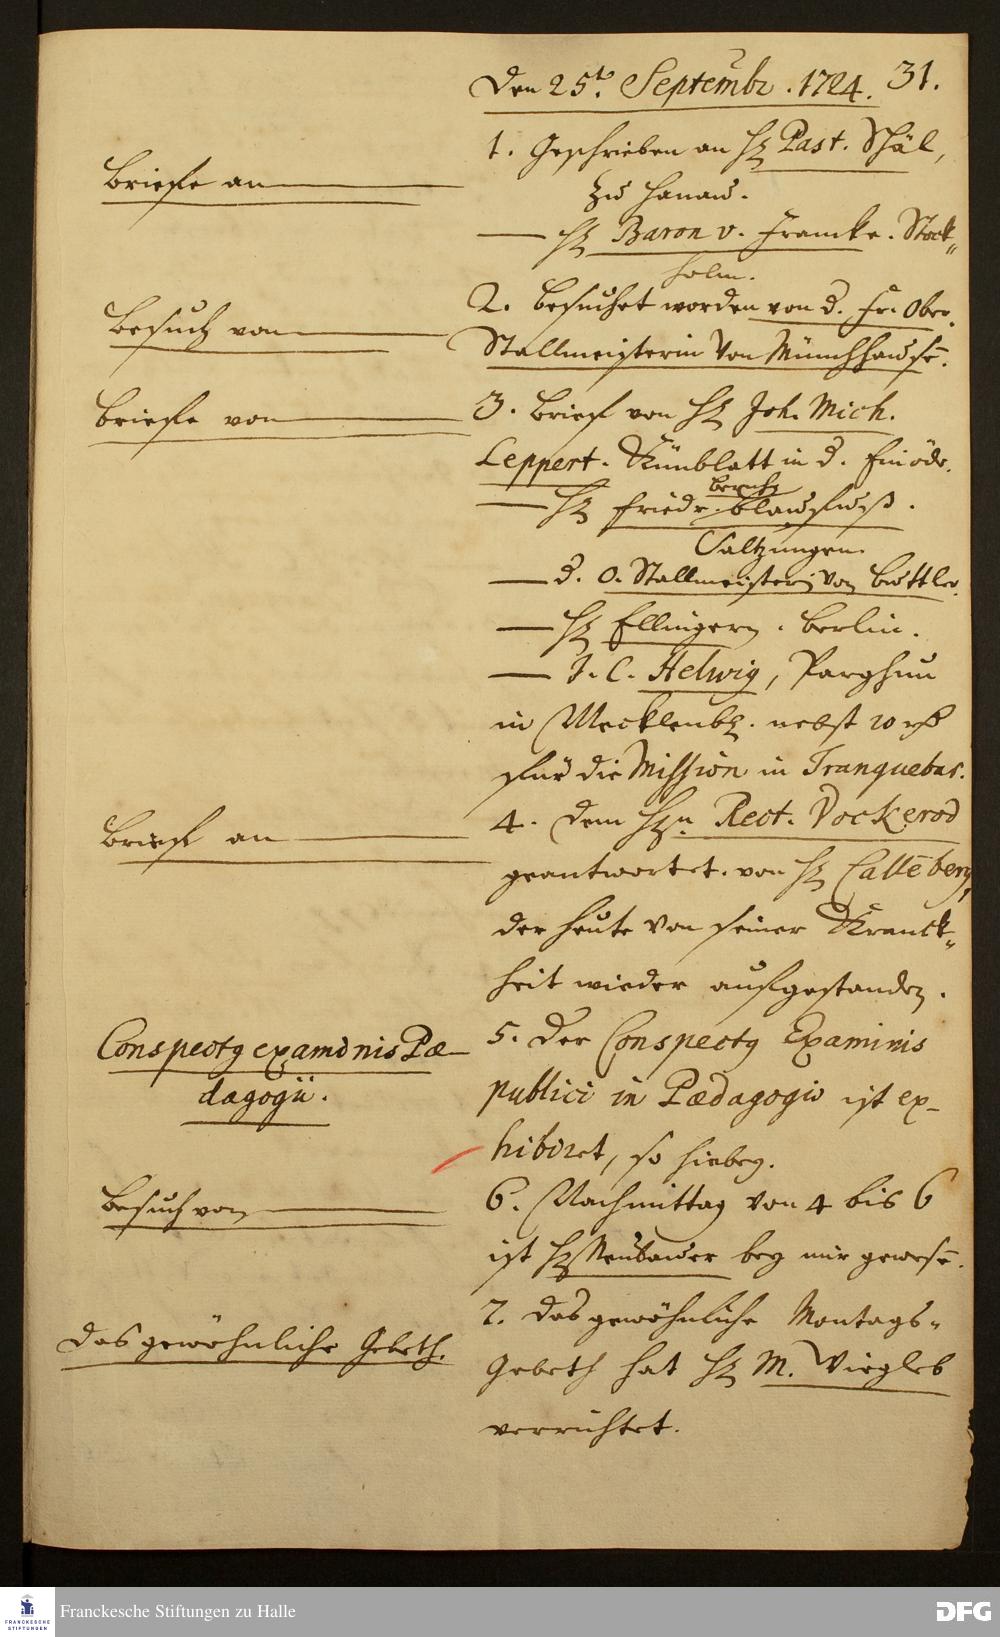 Den 25t. Septembr. 1724. 31.
Briefe an
1. Geschrieben an H. Past. Schäl,
zu Hanau.
H. Baron v. Francke. Stock-
holm.
Besuch von
2. Besuchet worden von d. Fr. Ober.
Stallmeisterin von Münchhausē.
Briefe von
3. Brief von H. Joh. Mich.
Leppert. Künblatt in d. Einöde.
H. Friedr. Blaufuß.
Saltzungen.
d. O. Stallmeisterin von Buttler.
H. Ellingern. Berlin.
J. C. Helwig, Parghun
in Mecklenb. nebst 20 rh
für die Mission in Tranquebar.
Brief an
4. dem Hn. Rect. Vockerod
geantwortet. von H. Callēberg,
der heute von seiner Kranck-
heit wieder aufgestanden.
Conspectq examinis Pæ-
dagogii.
5. Der Conspectq Examinis
publici in Pædagogio ist ex-
hibiret, so hiebey.
Besuch von
6. Nachmittag von 4 bis 6
ist H. Neubauer bey mir gewesē.
Das gewöhnliche Gebeth.
7. Das gewöhnliche Montags-
Gebeth hat H. M. Wiegleb
verrichtet.
FRANCKESCHE
STIFTUNGEN
Franckesche Stiftungen zu Halle
DFG